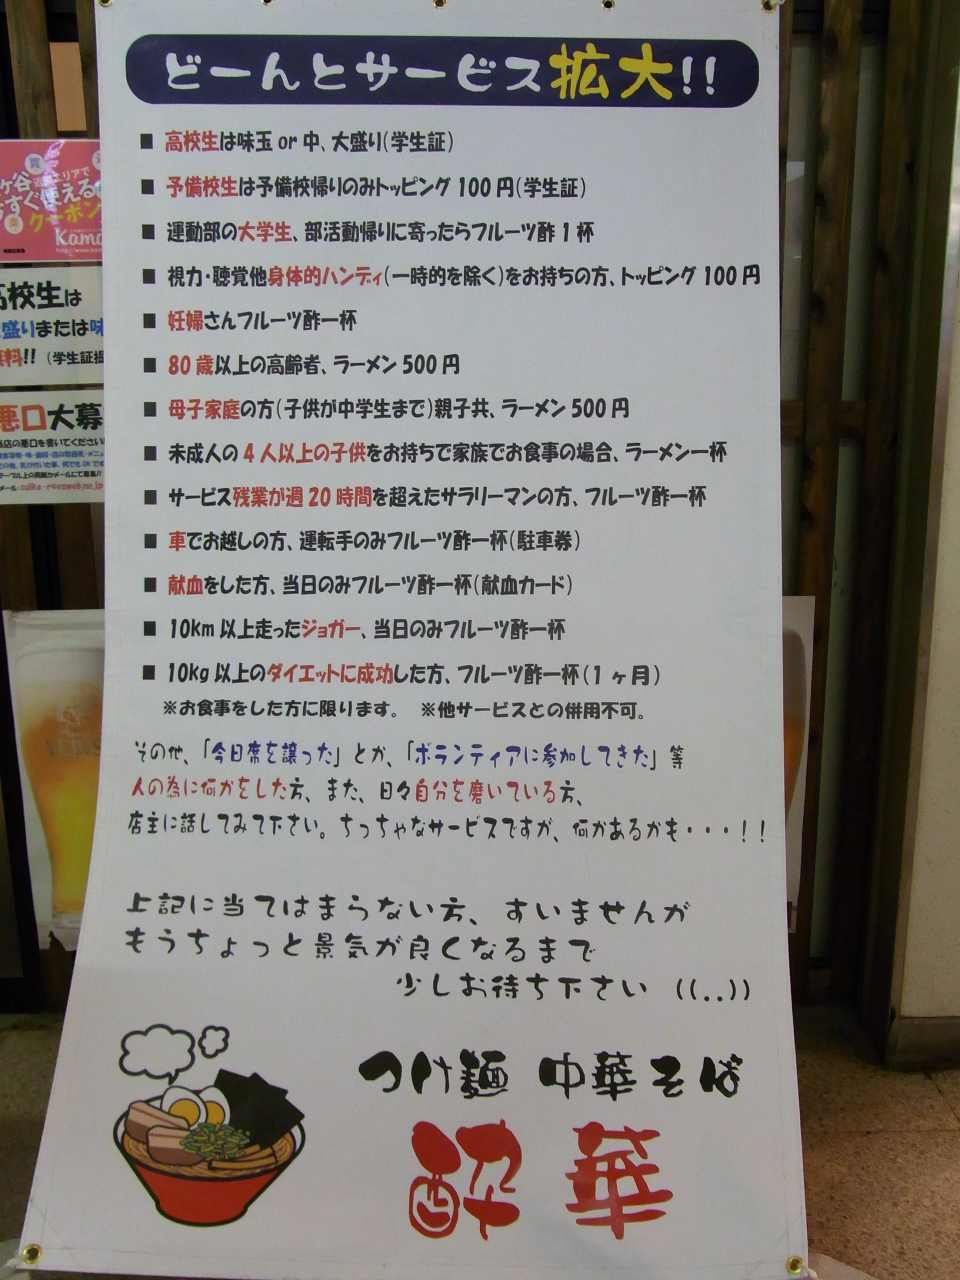 どーんとサービス拡大!!
■ 高校生は味玉 or 中、大盛り(学生証)
■ 予備校生は予備校帰りのみトッピング 100 円(学生証)
■ 運動部の大学生、部活動帰りに寄ったらフルーツ酢 1 杯
■ 視力・聴覚他身体的ハンディ(一時的を除く)をお持ちの方、トッピング 100 円
■ 妊婦さんフルーツ酢一杯
■ 80 歳以上の高齢者、ラーメン 500 円
■ 母子家庭の方(子供が中学生まで)親子共、ラーメン 500 円
■ 未成人の 4 人以上の子供をお持ちで家族でお食事の場合、ラーメン一杯
■ サービス残業が週 20 時間を超えたサラリーマンの方、フルーツ酢一杯
■ 車でお越しの方、運転手のみフルーツ酢一杯(駐車券)
■ 献血をした方、当日のみフルーツ酢一杯(献血カード)
■ 10km 以上走ったジョガー、当日のみフルーツ酢一杯
■ 10kg 以上のダイエットに成功した方、フルーツ酢一杯(1 ヶ月)
※お食事をした方に限ります。 ※他サービスとの併用不可。
その他、「今日席を譲った」とか、「ボランティアに参加してきた」等
人の為に何かをした方、また、日々自分を磨いている方、
店主に話してみて下さい。ちっちゃなサービスですが、何かあるかも・・・!!
上記に当てはまらない方、すいませんが
もうちょっと景気が良くなるまで
少しお待ち下さい ((..))
つけ麺 中華そば
酔華
ヶ谷
すぐ使える
クーポン
Kama
高校生は
盛りまたは味
無料!! (学生証提
悪口大募
当店の悪口を書いてください